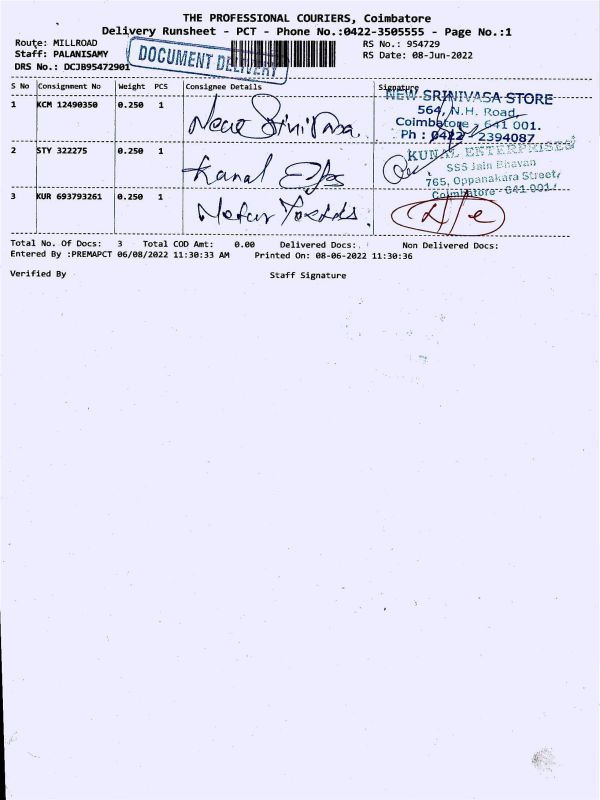 THE PROFESSIONAL COURIERS, Coimbatore
Delivery Runsheet - PCT - Phone No.:0422-3505555 - Page No.:1
Route: MILLROAD
RS No.: 954729
Staff: PALANISAMY
RS Date: 08-Jun-2022
DOCUMENT DELIVERY
DRS No.: DCJB95472901
S No Consignment No Weight PCS Consignee Details Signature
1 KCM 12490350 0.250 1 New Srinivasa
NEW SRINIVASA STORE
564, N.H. Road,
Coimbatore - 641 001.
Ph : 0422 - 2394087
2 STY 322275 0.250 1 Kanal
KUNAL ENTERPRISES
SSS Jain Bhavan
765, Oppanakara Street,
Coimbatore - 641 001.
3 KUR 693793261 0.250 1
Total No. Of Docs: 3 Total COD Amt: 0.00 Delivered Docs: Non Delivered Docs:
Entered By :PREMAPCT 06/08/2022 11:30:33 AM Printed On: 08-06-2022 11:30:36
Verified By Staff Signature